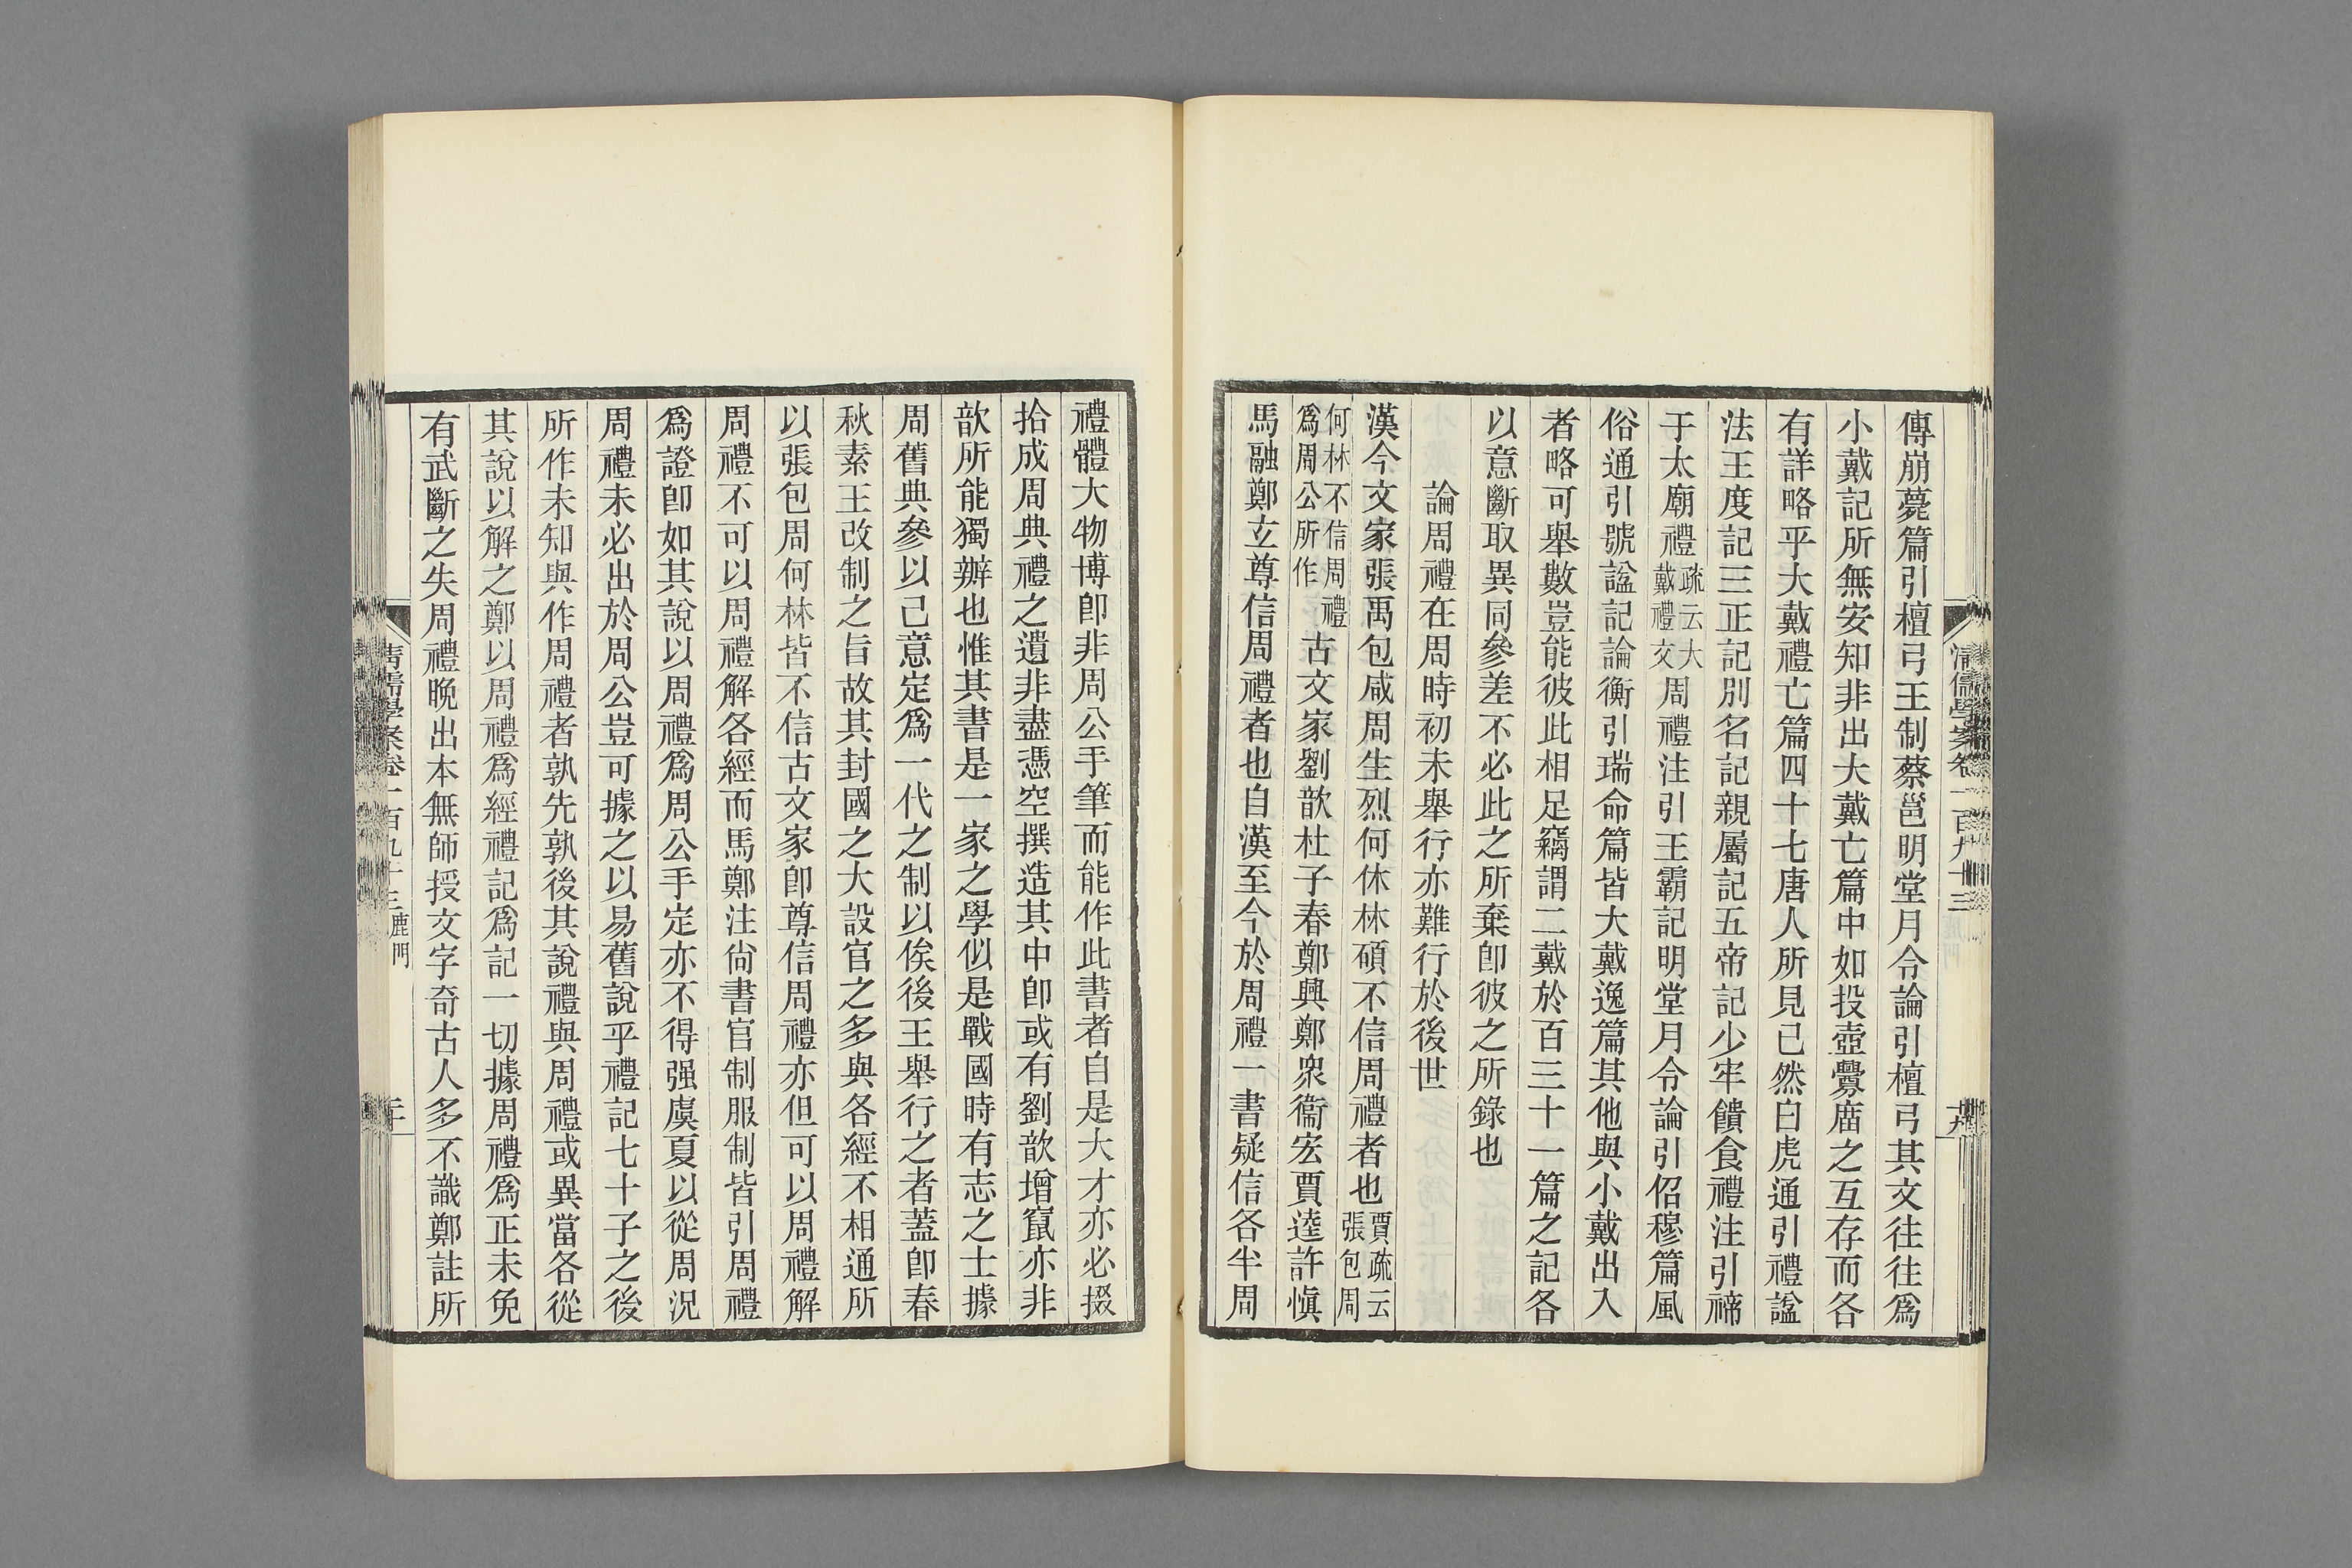 傳崩薨篇引檀弓王制蔡邕明堂月令論引檀弓其文往往爲
小戴記所無安知非出大戴亡篇中如投壺釁廟之互存而各
有詳略乎大戴禮亡篇四十七唐人所見已然白虎通引禮諡
法王度記三正記別名記親屬記五帝記少牢饋食禮注引禘
于太廟禮疏云大戴禮文周禮注引王霸記明堂月令論引佋穆篇風
俗通引號諡記論衡引瑞命篇皆大戴逸篇其他與小戴出入
者略可舉數豈能彼此相足竊謂二戴於百三十一篇之記各
以意斷取異同參差不必此之所棄卽彼之所錄也
論周禮在周時初未舉行亦難行於後世
漢今文家張禹包咸周生烈何休林碩不信周禮者也賈疏云張包周
何林不信周禮爲周公所作古文家劉歆杜子春鄭興鄭衆衞宏賈逵許愼
馬融鄭玄尊信周禮者也自漢至今於周禮一書疑信各半周
清儒學案卷一百九十三
十九
禮體大物博卽非周公手筆而能作此書者自是大才亦必掇
拾成周典禮之遺非盡憑空撰造其中卽或有劉歆增竄亦非
歆所能獨辦也惟其書是一家之學似是戰國時有志之士據
周舊典參以己意定爲一代之制以俟後王舉行之者蓋卽春
秋素王改制之旨故其封國之大設官之多與各經不相通所
以張包周何林皆不信古文家卽尊信周禮亦但可以周禮解
周禮不可以周禮解各經而馬鄭注尙書官制服制皆引周禮
爲證卽如其說以周禮爲周公手定亦不得强虞夏以從周況
周禮未必出於周公豈可據之以易舊說乎禮記七十子之後
所作未知與作周禮者孰先孰後其說禮與周禮或異當各從
其說以解之鄭以周禮爲經禮記爲記一切據周禮爲正未免
有武斷之失周禮晚出本無師授文字奇古人多不識鄭註所
清儒學案卷一百九十三 鹿門
二十